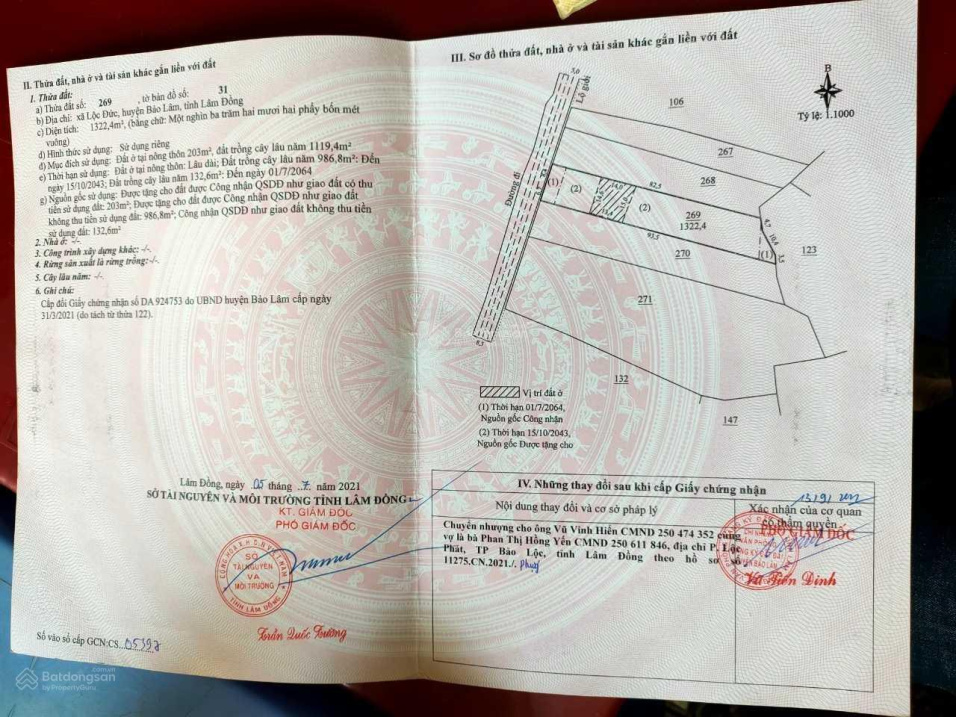 II. Thửa đất, nhà ở và tài sản khác gắn liền với đất
1. Thửa đất:
a) Thửa đất số: 269 , tờ bản đồ số: 31
b) Địa chỉ: xã Lộc Đức, huyện Bảo Lâm, tỉnh Lâm Đồng
c) Diện tích: 1322,4m², (bằng chữ: Một nghìn ba trăm hai mươi hai phẩy bốn mét
vuông)
d) Hình thức sử dụng: Sử dụng riêng
đ) Mục đích sử dụng: Đất ở tại nông thôn 203m², đất trồng cây lâu năm 1119,4m²
e) Thời hạn sử dụng: Đất ở tại nông thôn: Lâu dài; Đất trồng cây lâu năm 986,8m²: Đến
ngày 15/10/2043; Đất trồng cây lâu năm 132,6m²: Đến ngày 01/7/2064
g) Nguồn gốc sử dụng: Được tặng cho đất được Công nhận QSDĐ như giao đất có thu
tiền sử dụng đất: 203m²; Được tặng cho đất được Công nhận QSDĐ như giao đất
không thu tiền sử dụng đất: 986,8m²; Công nhận QSDĐ như giao đất không thu tiền
sử dụng đất: 132,6m²
2. Nhà ở: -/-
3. Công trình xây dựng khác: -/-
4. Rừng sản xuất là rừng trồng: -/-
5. Cây lâu năm: -/-
6. Ghi chú:
Cấp đổi Giấy chứng nhận số DA 924753 do UBND huyện Bảo Lâm cấp ngày
31/3/2021 (do tách từ thửa 122).
Lâm Đồng, ngày 05 tháng 7 năm 2021
SỞ TÀI NGUYÊN VÀ MÔI TRƯỜNG TỈNH LÂM ĐỒNG
KT. GIÁM ĐỐC
PHÓ GIÁM ĐỐC
SỞ
TÀI NGUYÊN
VÀ
MÔI TRƯỜNG
TỈNH LÂM ĐỒNG
Trần Quốc Trường
Số vào sổ cấp GCN:CS...05392
Batdongsan
by PropertyGuru
III. Sơ đồ thửa đất, nhà ở và tài sản khác gắn liền với đất
B
Tỷ lệ: 1:1000
5,0
Lộ giới
Đường đi
106
267
268
(1)
(2)
14,0
82,5
(2)
269
1322,4
93,5
270
(1)
123
271
132
147
Vị trí đất ở
(1) Thời hạn 01/7/2064,
Nguồn gốc Công nhận
(2) Thời hạn 15/10/2043,
Nguồn gốc Được tặng cho
IV. Những thay đổi sau khi cấp Giấy chứng nhận
Nội dung thay đổi và cơ sở pháp lý
Xác nhận của cơ quan
có thẩm quyền
Chuyển nhượng cho ông Vũ Vinh Hiển CMND 250 474 352 cùng
vợ là bà Phan Thị Hồng Yến CMND 250 611 846, địa chỉ P. Lộc
Phát, TP Bảo Lộc, tỉnh Lâm Đồng theo hồ sơ số
11275.CN.2021./.
PHÓ GIÁM ĐỐC
Vũ Tiến Định